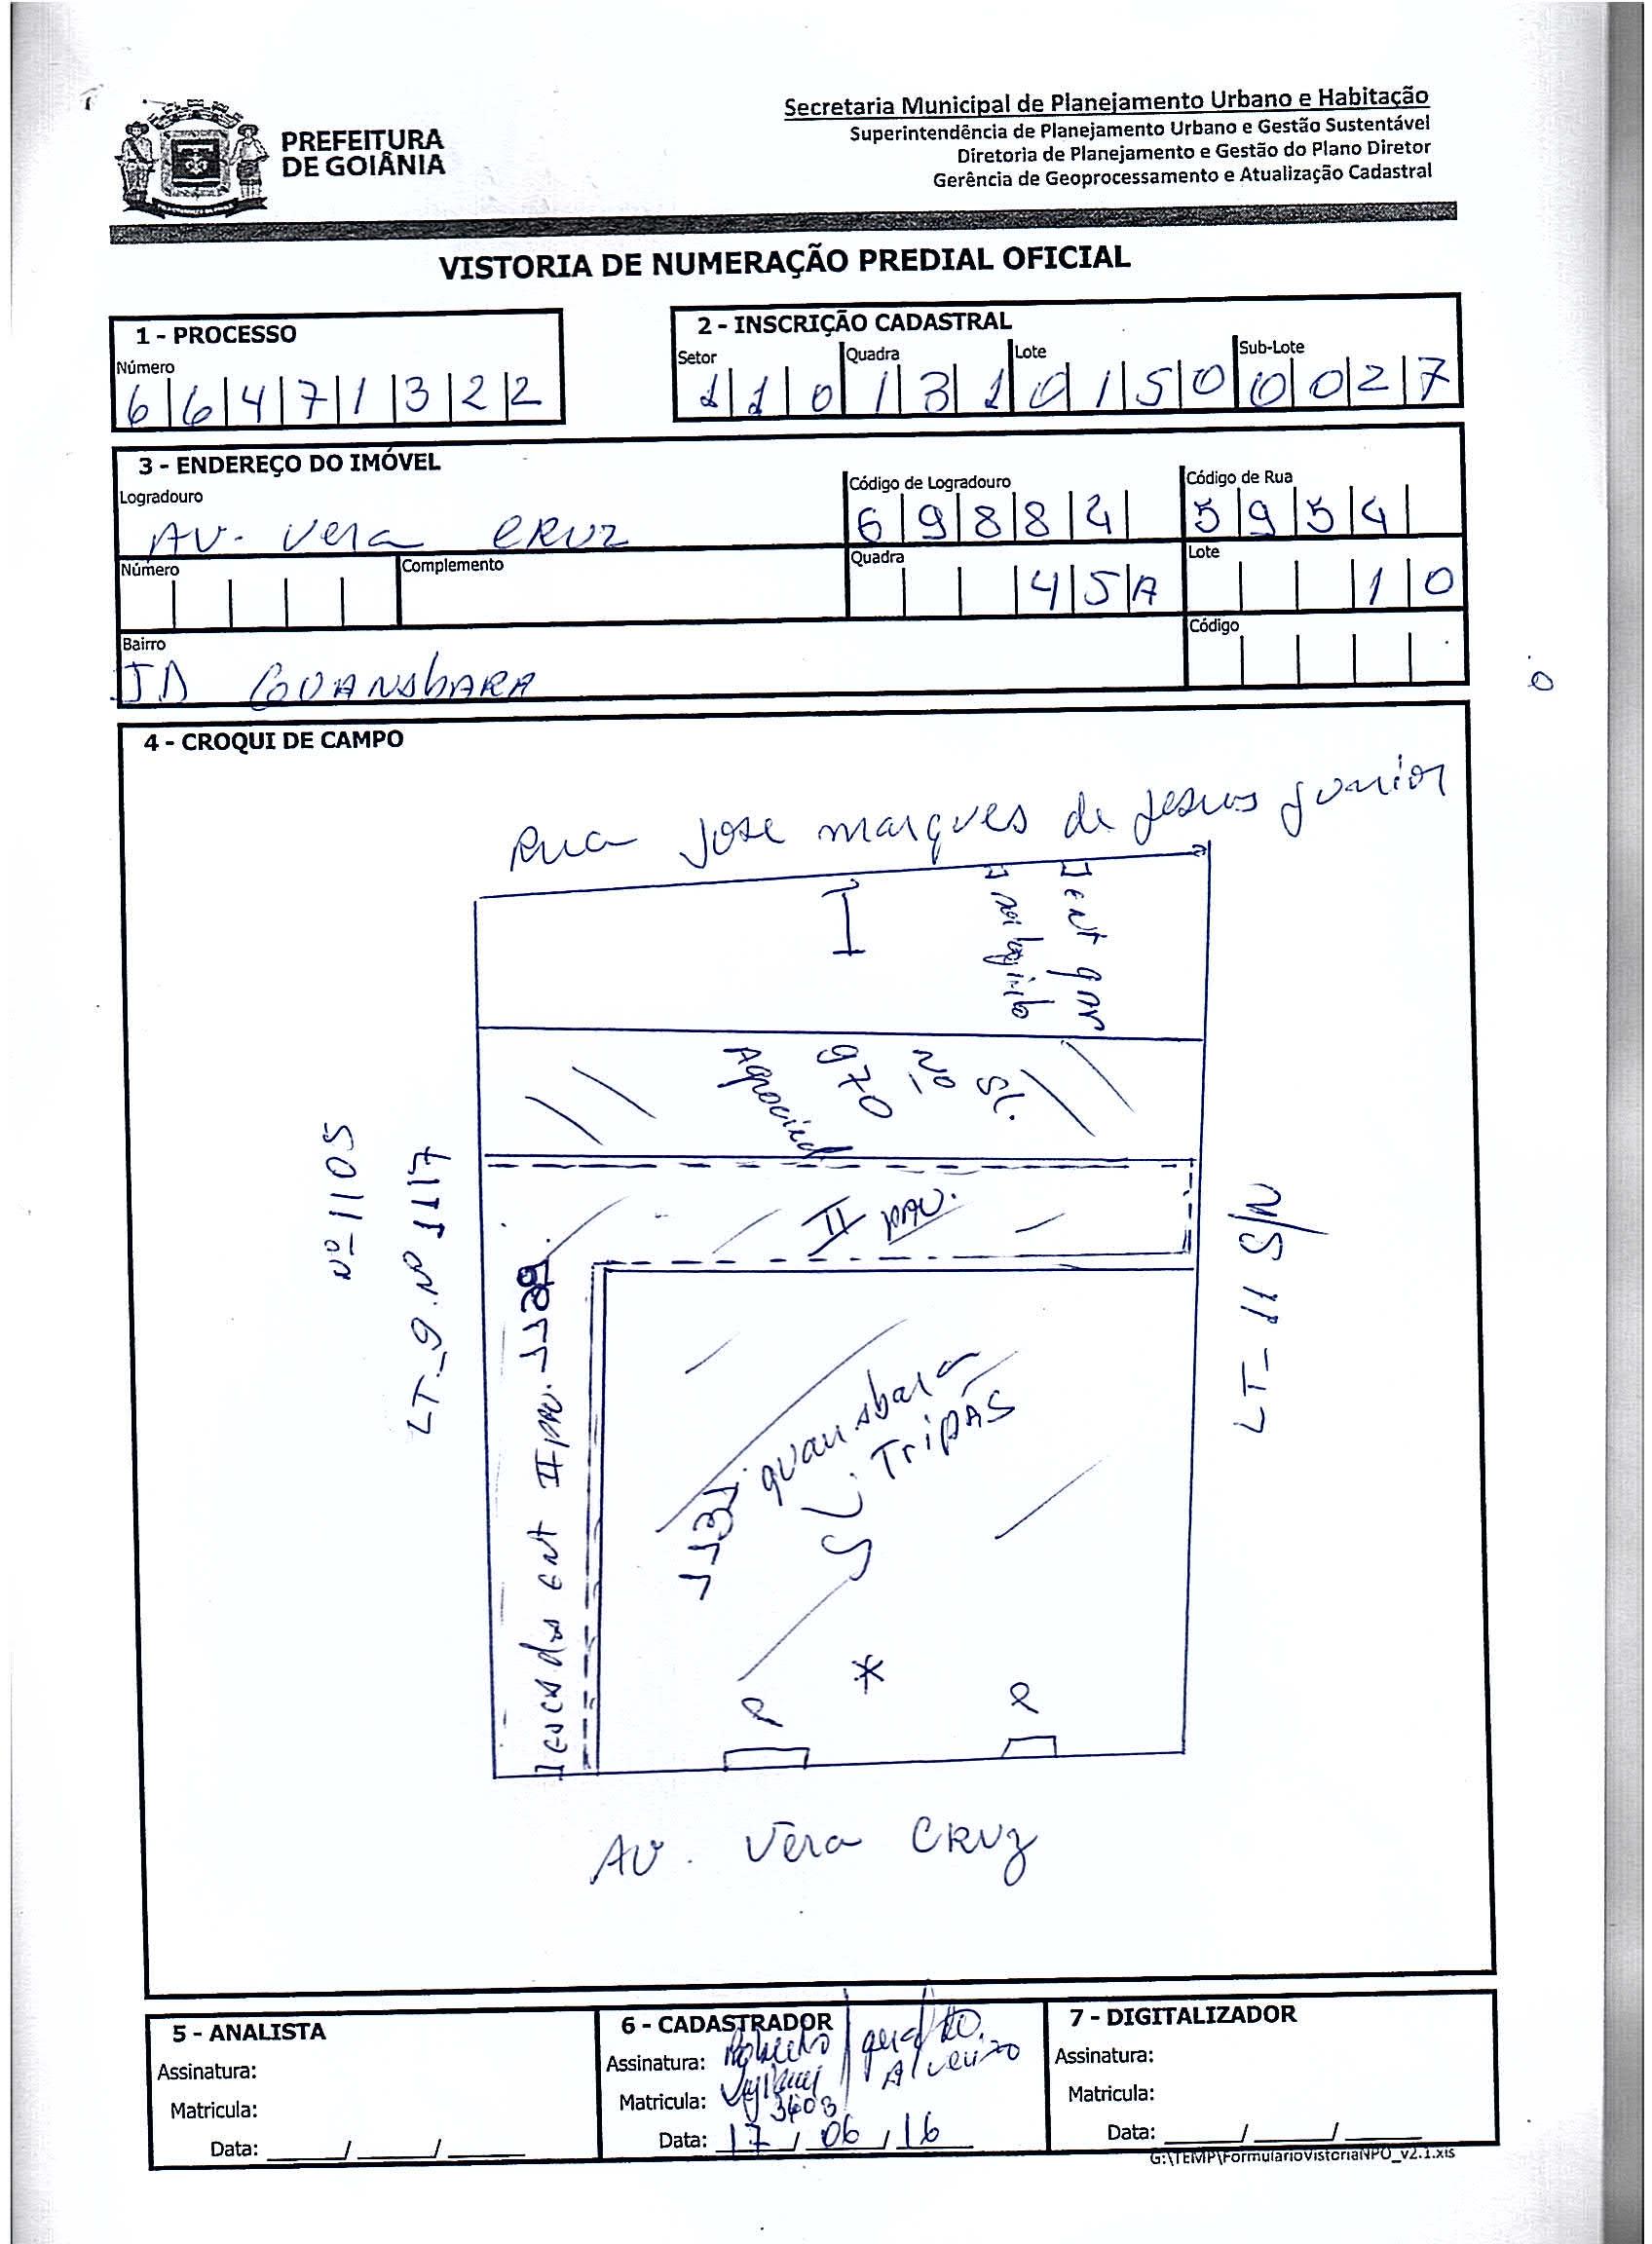 PREFEITURA
DE GOIÂNIA
Secretaria Municipal de Planejamento Urbano e Habitação
Superintendência de Planejamento Urbano e Gestão Sustentável
Diretoria de Planejamento e Gestão do Plano Diretor
Gerência de Geoprocessamento e Atualização Cadastral
VISTORIA DE NUMERAÇÃO PREDIAL OFICIAL
1 - PROCESSO
Número
6 6 4 7 1 3 2 2
2 - INSCRIÇÃO CADASTRAL
Setor Quadra Lote Sub-Lote
1 1 0 1 3 1 0 1 5 0 0 0 2 7
3 - ENDEREÇO DO IMÓVEL
Logradouro
AV. Vera CRUZ
Código de Logradouro
6 9 8 8 4
Código de Rua
5 9 5 4
Número
Complemento
Quadra
4 5 A
Lote
1 0
Bairro
JD GUANABARA
Código
4 - CROQUI DE CAMPO
Rua Jose marques de Jesus Junior
I
ent gar
Nº
SL.
970
II PAV.
Nº 1105
LT-9.Nº 1117
LT-11 S/N
escadas ent II pav. 1129.
1131
guanabara
SL. Tripas
*
P
P
AV. Vera CRUZ
5 - ANALISTA
Assinatura:
Matricula:
Data: ____/____/____
6 - CADASTRADOR
Assinatura:
Matricula: 3403
Data: 17/06/16
7 - DIGITALIZADOR
Assinatura:
Matricula:
Data: ____/____/____
G:\TEMP\FormularioVistoriaNPO_v2.1.xls